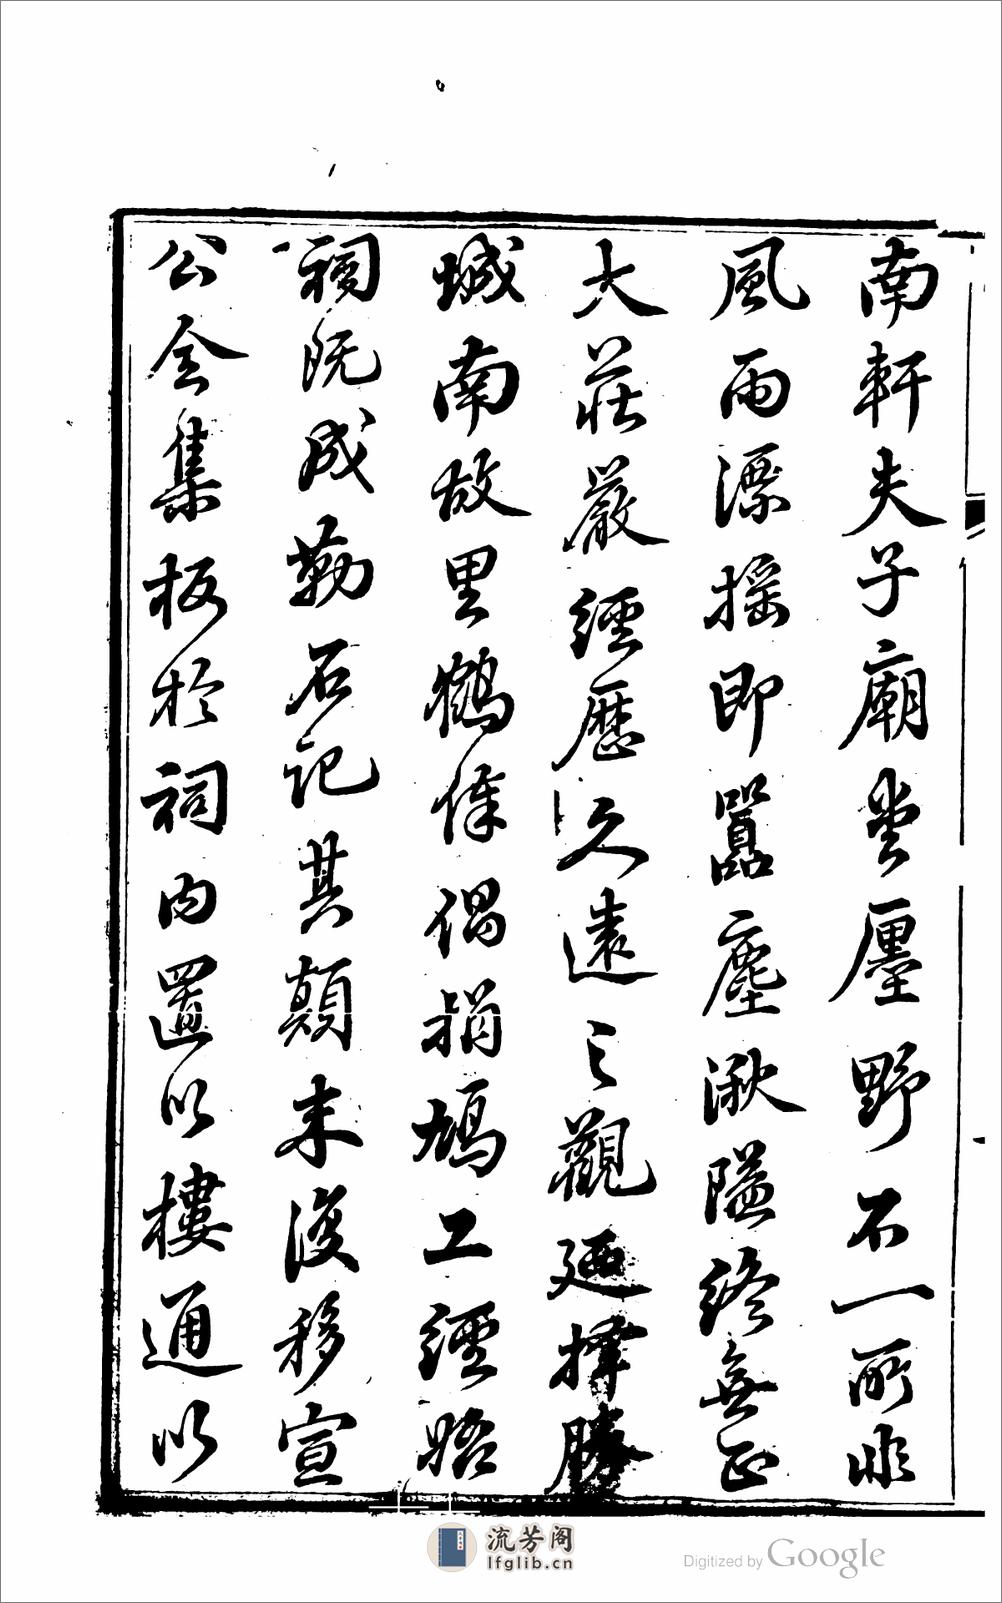 南軒夫子廟堂廛野不一所非
風雨漂搖即囂塵湫隘終無正
大莊嚴經歷久遠之觀廼擇勝
城南故里鶴俸倡捐鳩工經始
祠既成勒石記其顛末復移宣
公全集板於祠內置以樓通以
流芳阁
lfglib.cn
Digitized by Google